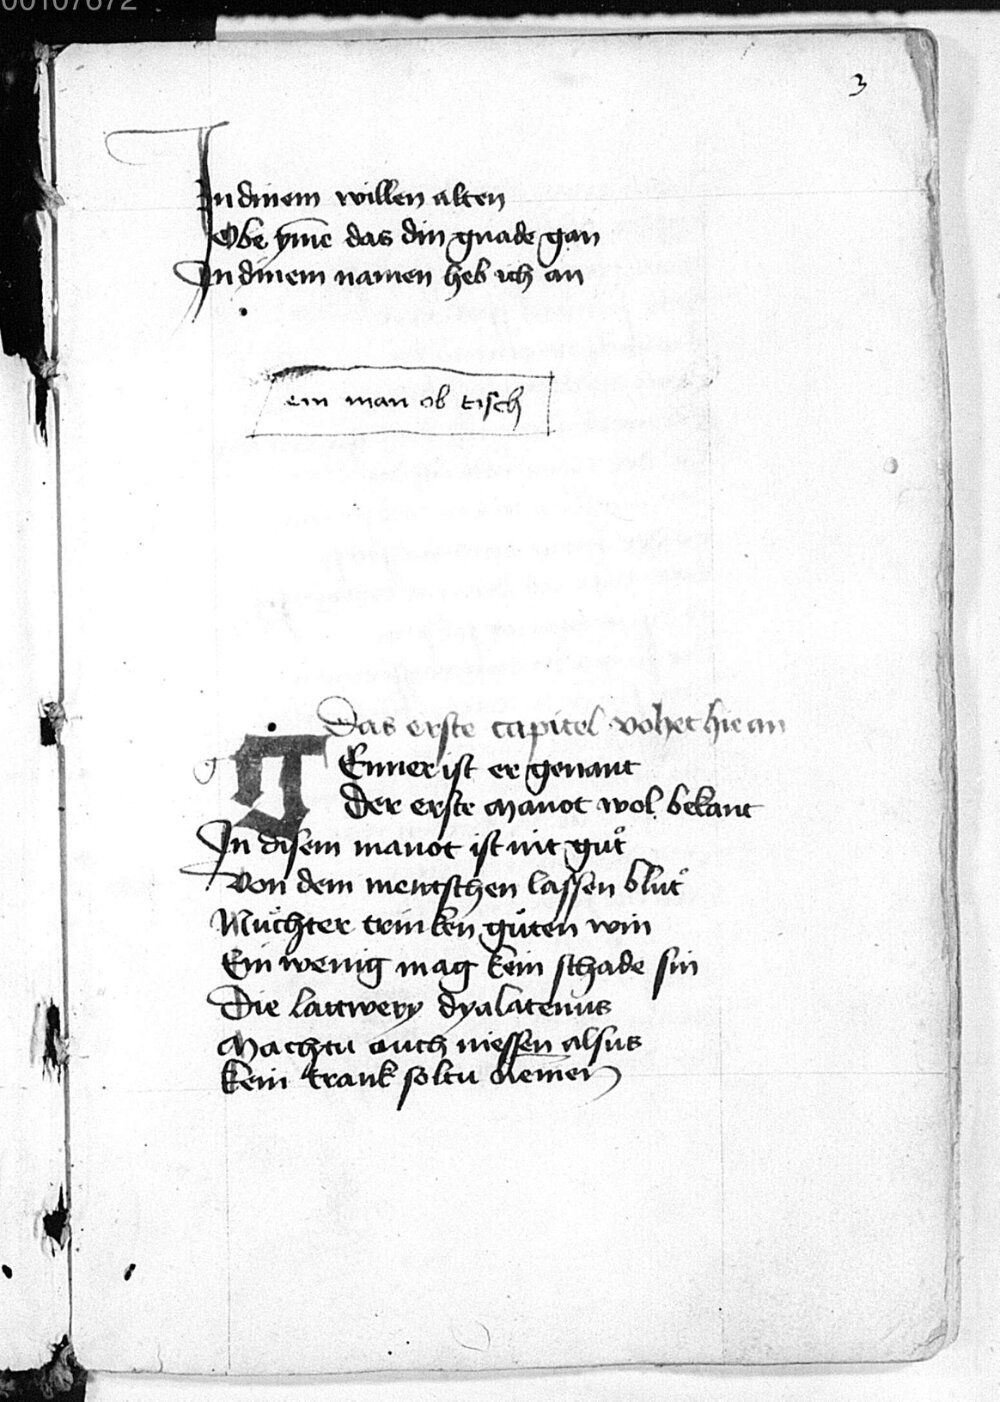 00107672
3
In dinem willen alten
Obe yme das din gnade gan
In dinem namen heb ich an
ein man ob tisch
Das erste capitel vohet hie an
g
GEnner ist er genant
Der erste manot wol bekant
In disem manot ist nit guͦt
Von dem mentschen lassen bluͦt
Nuͤchter trinken guͦten win
Ein wenig mag kein schade sin
Die lattwery dyalatenus
Machtu ouch niessen alsus
Kein trank soltu nemen